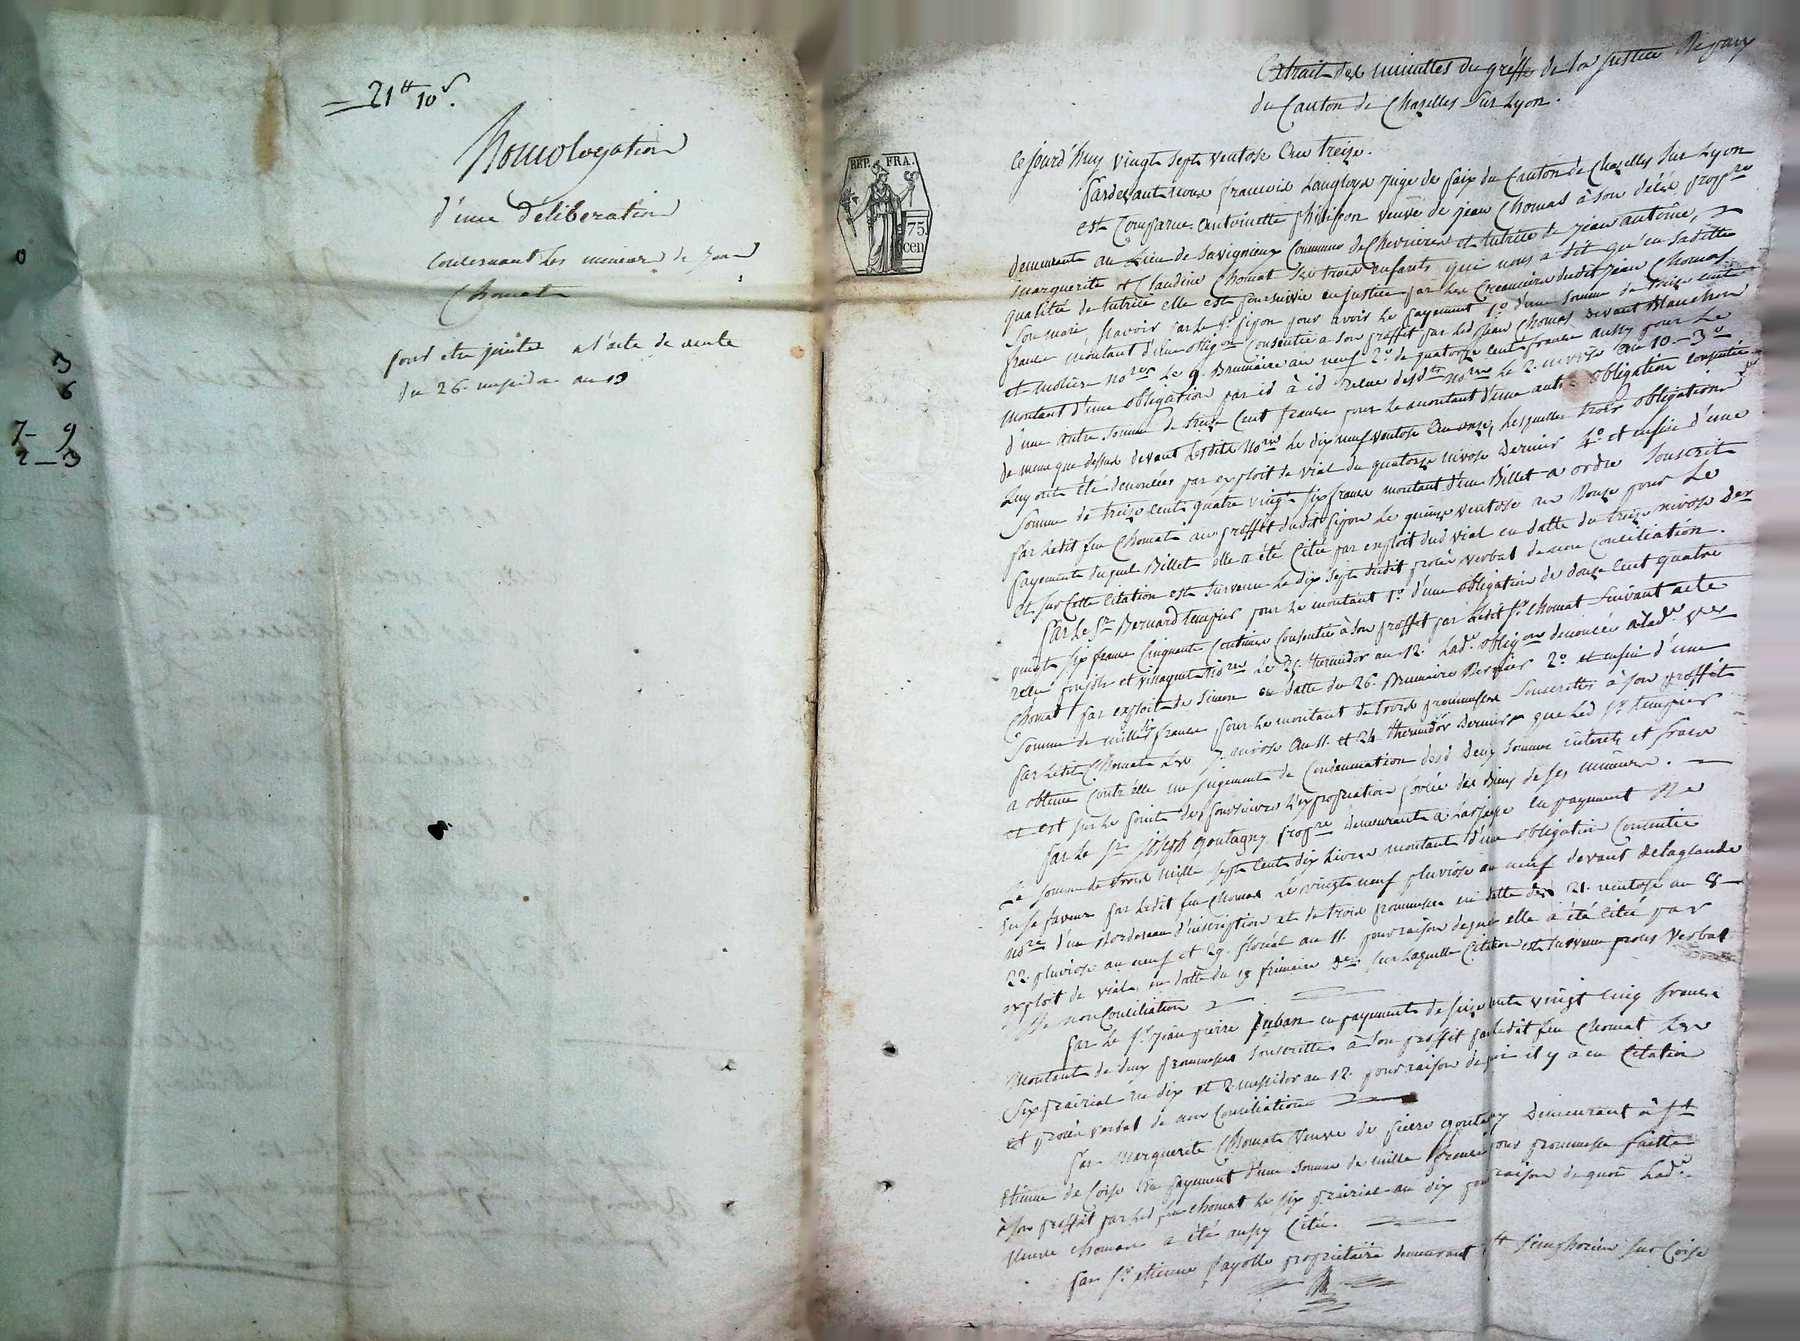 21tt 10s.
homologation
d'une déliberation
concernant les mineurs de Jean
Chomat
pour etre jointe a l'acte de vente
du 26 messidor an 13
0
3
6
7- 9
2-3
Extrait des minuttes du greffe de la justice de paix
du Canton de Chazelles sur Lyon.
REP. FRA.
75.
cen
Ce jourd'huy vingt sept ventose an treize.
Pardevant nous francois Langlois juge de paix du Canton de Chazelles sur Lyon
est Comparue antoinette philipon veuve de jean Chomat à son décés propre
demeurante au Lieu de Savignieux Commune de Chevrieres et tutrice de jean antoine,
marguerite et Claudine Chomat ses trois enfants qui nous a dit qu'en saditte
qualité de tutrice elle est poursuivie en justice par les Creanciers dudit jean Chomat
Son mari, scavoir par le sr. pijon pour avoir le payement 1o d'une somme de treize cent
francs montant d'une obligon Consentie a son proffit par led. jean Chomat devant Blanchon
et molier nores le 9. Brumaire an neuf 2o de quatorze cent francs aussy pour le
montant d'une obligation par id à id reçue desdts nores le 2. nivose an 10 - 3o
d'une autre somme de treize Cent francs pour le montant d'une autre obligation consentie
de meme que dessus devant lesdits nores le dix neuf ventose an onze, lesquelles trois obligations
luy ont été denoncées par exploit de vial du quatorze nivose dernier 4o et enfin d'une
Somme de treize cent quatre vingt six francs montant d'un Billet a ordre Souscrit
par ledit feu Chomat au proffit dudit pijon le quinze ventose an douze pour le
payement duquel Billet elle a été Citée par exploit dud vial en datte du treize nivose der
et sur Cette Citation est survenu le dix sept dudit procès verbal de non conciliation.
Par le Sr Bernard tempier pour le montant 1o d'une obligation de douze Cent quatre
vingt six francs Cinquante Centimes Consentie à son proffit par ledit sr. Chomat suivant acte
reçu et nores le 25. thermidor an 12. Lade. obligon denoncée a lade. ve
Chomat par exploit de Simon en datte du 26. Brumaire dernier 2o et enfin d'une
Somme de mille dix francs pour le montant de trois promesses Souscrittes à son proffit
par ledit Chomat les 7. nivose an 11. et 24. thermidor dernier que led. sr. tempier
a obtenu contr'elle un jugement de Condamnation desd. deux sommes interets et frais
et est sur le point de poursuivre l'expropriation forcée des biens de ses mineurs.
Par le sr. joseph goutagny propre demeurant a Larajasse en payement de
la somme de trois mille sept cent dix livres montant d'une obligation Consentie
en sa faveur par ledit feu Chomat le vingt neuf pluviose an neuf devant delaglande
nore d'un Bordereau d'inscription et de trois promesses en datte des 21. ventose an 8
22. pluviose an neuf et 29. floréal an 11. pour raison de quoi elle a été Citée par
exploit de vial, en datte du 13 frimaire der sur laquelle Citation est survenu procés verbal
de non Conciliation
Par le sr. jean pierre juban en payement de seize cent vingt cinq francs
montant de deux promesses souscrittes à son proffit par ledit feu Chomat les
six prairial an dix et 2. messidor an 12. pour raison de quoi il y a eu Citation
et procès verbal de non Conciliation
Par marguerite Chomat veuve de pierre goutagny demeurant à st.
etienne de Coise en payement d'une somme de mille francs pour promesse faitte
à son proffit par led. feu Chomat le six prairial an dix pour raison de quoi lade.
veuve Chomat a été aussy Citée.
par sr. etienne fayolle proprietaire demeurant a st simphorien sur Coise